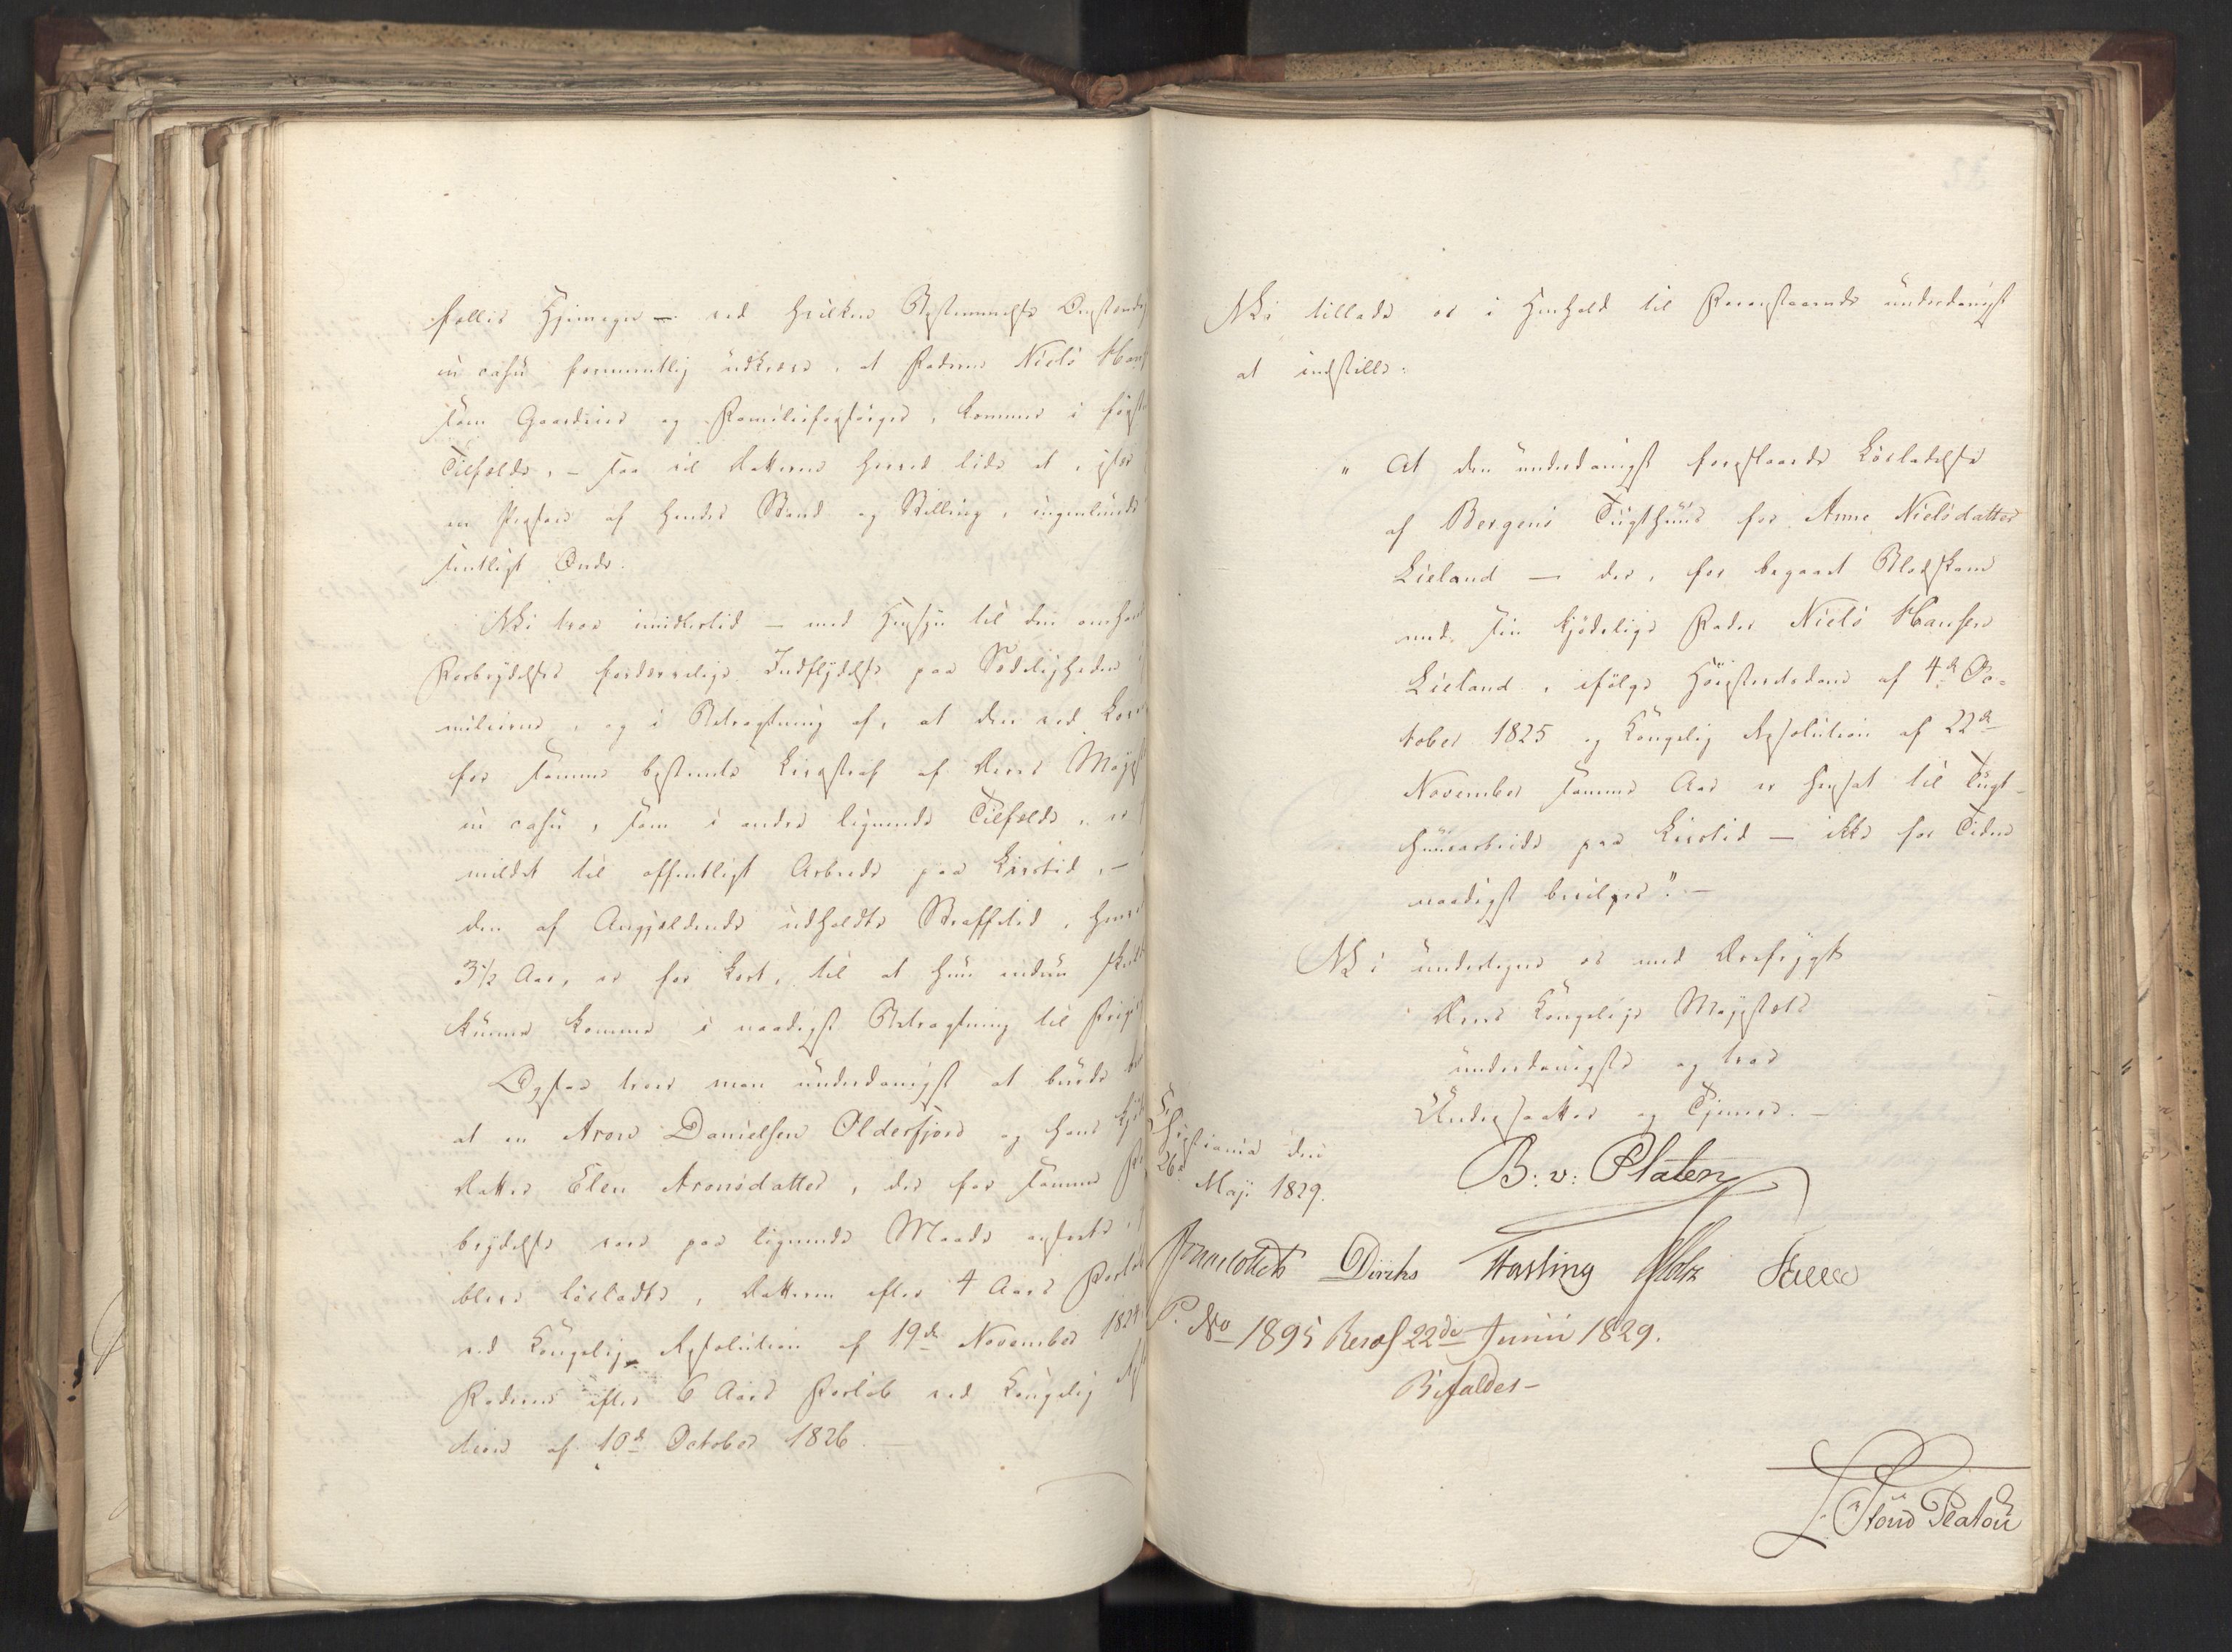 fælles Hjemegn — ved hvilken Bestemmelse Omstænd
in casu formentlig udkræve, at Faderen Niels Hans
som Gaardeier og Familieforsørger, kommer i første
Tilfælde, — saa vil Datteren herved lide et, især
en Person af hendes Stand og Stilling, ingenlunde
sentligt Onde.
Vi troe imidlertid — med Hensyn til den omhan
Forbrydelses fordærvelige Indflydelse paa Sædeligheden i
milierne, og i Betragtning af, at den ved Lov
for samme bestemte Livsstraf af Deres Majest
in casu, som i andre lignende Tilfælde, er
mildet til offentligt Arbeide paa Livstid, —
den af Angjældende udholdte Straffetid, hen
3½ Aar, er for kort, til at hun endnu skulde
kunne komme i naadigst Betragtning til Frig
Ogsaa troer man underdanigst at burde be
at en Aron Danielsen Oldersfjord og hans kjød
Datter Elen Aronsdatter, der for samme For
brydelse vare paa lignende Maade ansete,
bleve løsladte, Datteren efter 4 Aars Forløb
ved Kongelig Resolution af 19de November 1824
Faderen efter 6 Aars Forløb ved Kongelig Res
tion af 10de October 1826.
Vi tillade os i Henhold til Foranstaaende underdanigst
at indstille:
" At den underdanigst foreslaaede Løsladelse
af Bergens Tugthuus for Anne Nielsdatter
Lieland — der, for begaaet Blodskam
med sin kjødelige Fader Niels Hansen
Lieland, ifølge Høiesteretsdom af 4de Oc=
tober 1825 og Kongelig Resolution af 22de
November samme Aar er hensat til Tugt-
huusarbeide paa Livstid — ikke for Tiden
naadigst bevilges". —
Vi undertegne os med Ærefrygt
Deres Kongelige Majestæts
underdanigste og troe
Undersaatter og Tjenere. —
Christiania den
26de Maji 1829.
B: v: Platen
Diriks Fasting Holst
P. No 1895 Resol 22de Junii 1829.
Bifaldes —